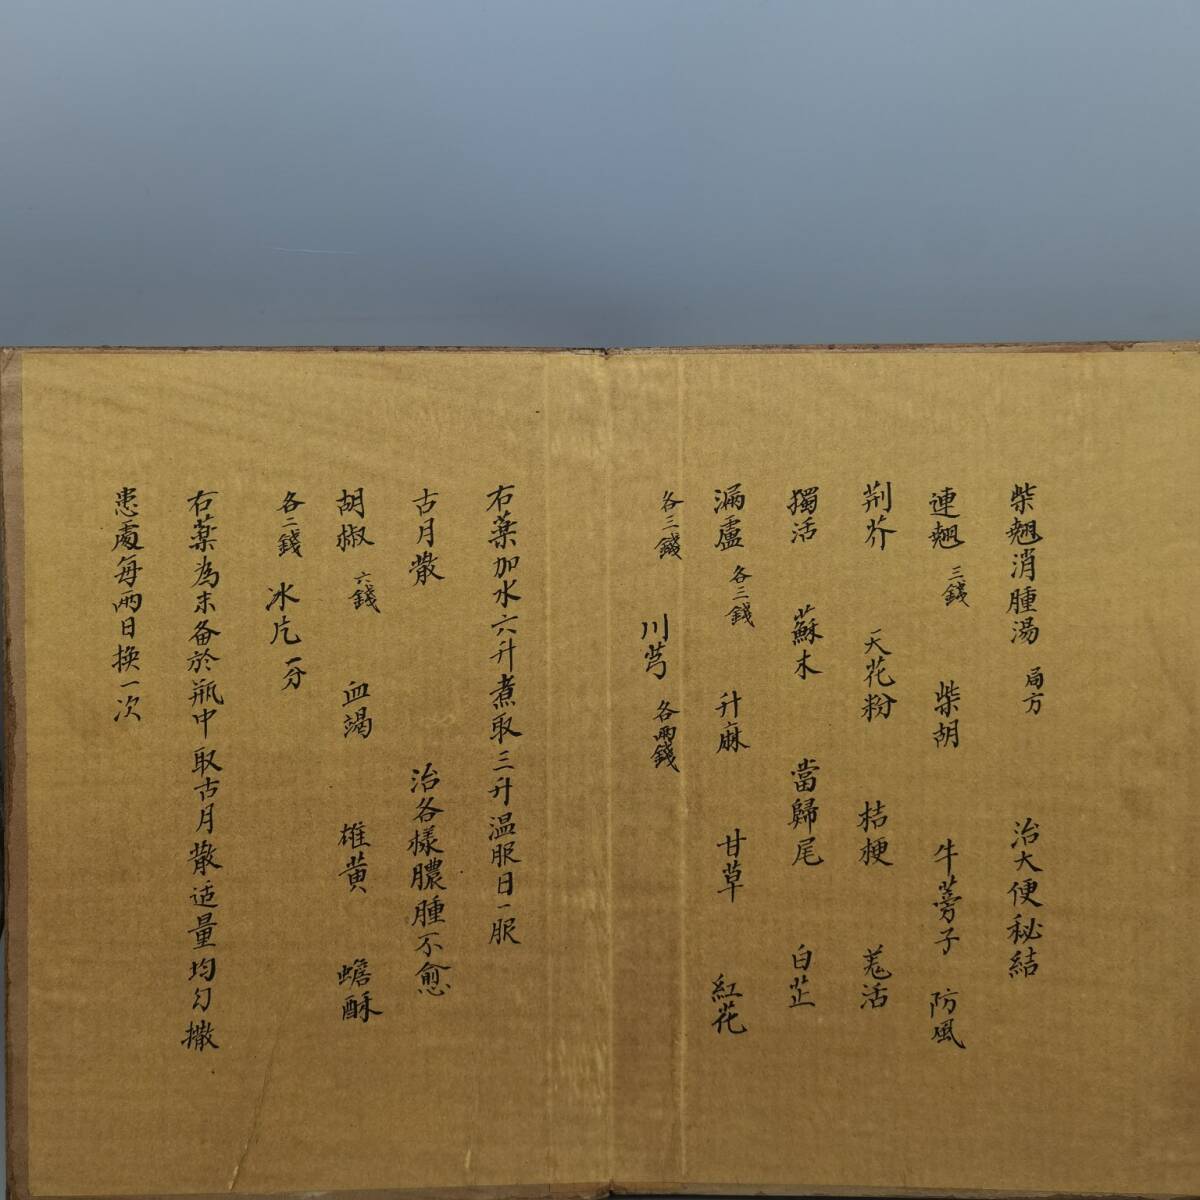 柴翹消腫湯 局方 治大便秘結
連翹 三錢 柴胡 牛蒡子 防風
荆芥 天花粉 桔梗 羌活
獨活 蘇木 當歸尾 白芷
漏盧 各三錢 升麻 甘草 紅花
各三錢 川芎 各兩錢
右藥加水六升煮取三升温服日一服
古月散 治各樣膿腫不愈
胡椒 六錢 血竭 雄黃 蟾酥
各二錢 冰片 一分
右藥為末备於瓶中取古月散适量均匀撒
患處每兩日換一次